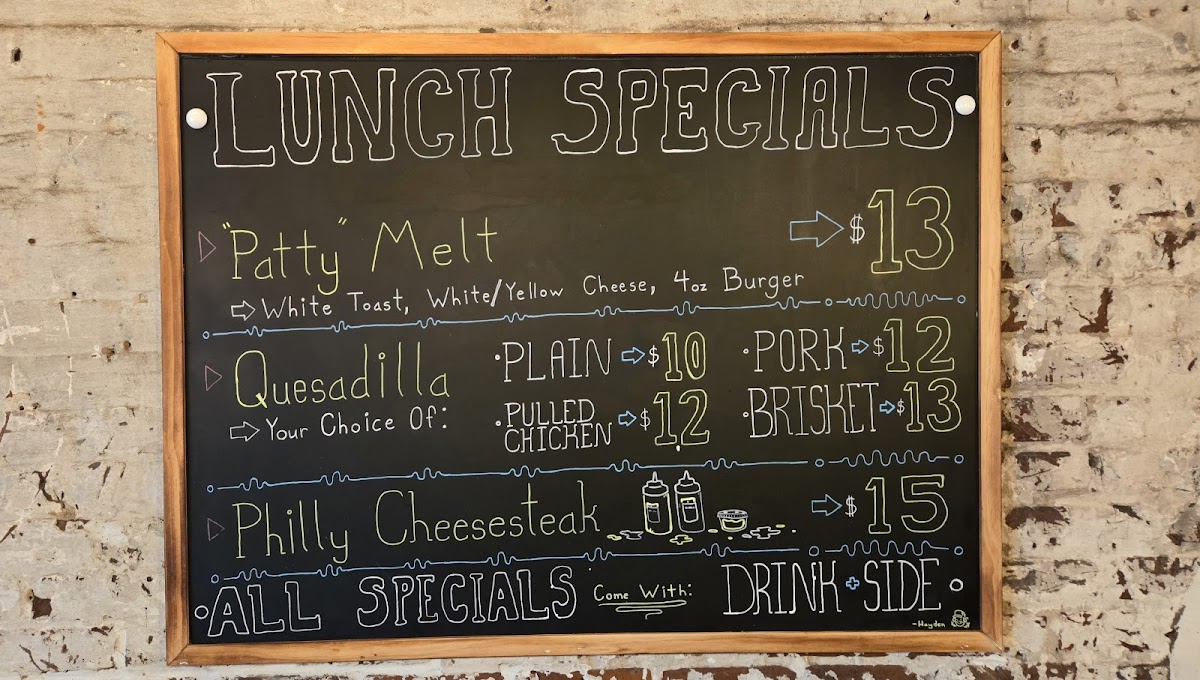 LUNCH SPECIALS
"Patty" Melt $13
White Toast, White/Yellow Cheese, 4oz Burger
Quesadilla
Your Choice Of:
·PLAIN $10
·PULLED CHICKEN $12
·PORK $12
·BRISKET $13
Philly Cheesesteak $15
ALL SPECIALS Come With: DRINK + SIDE
-Hayden